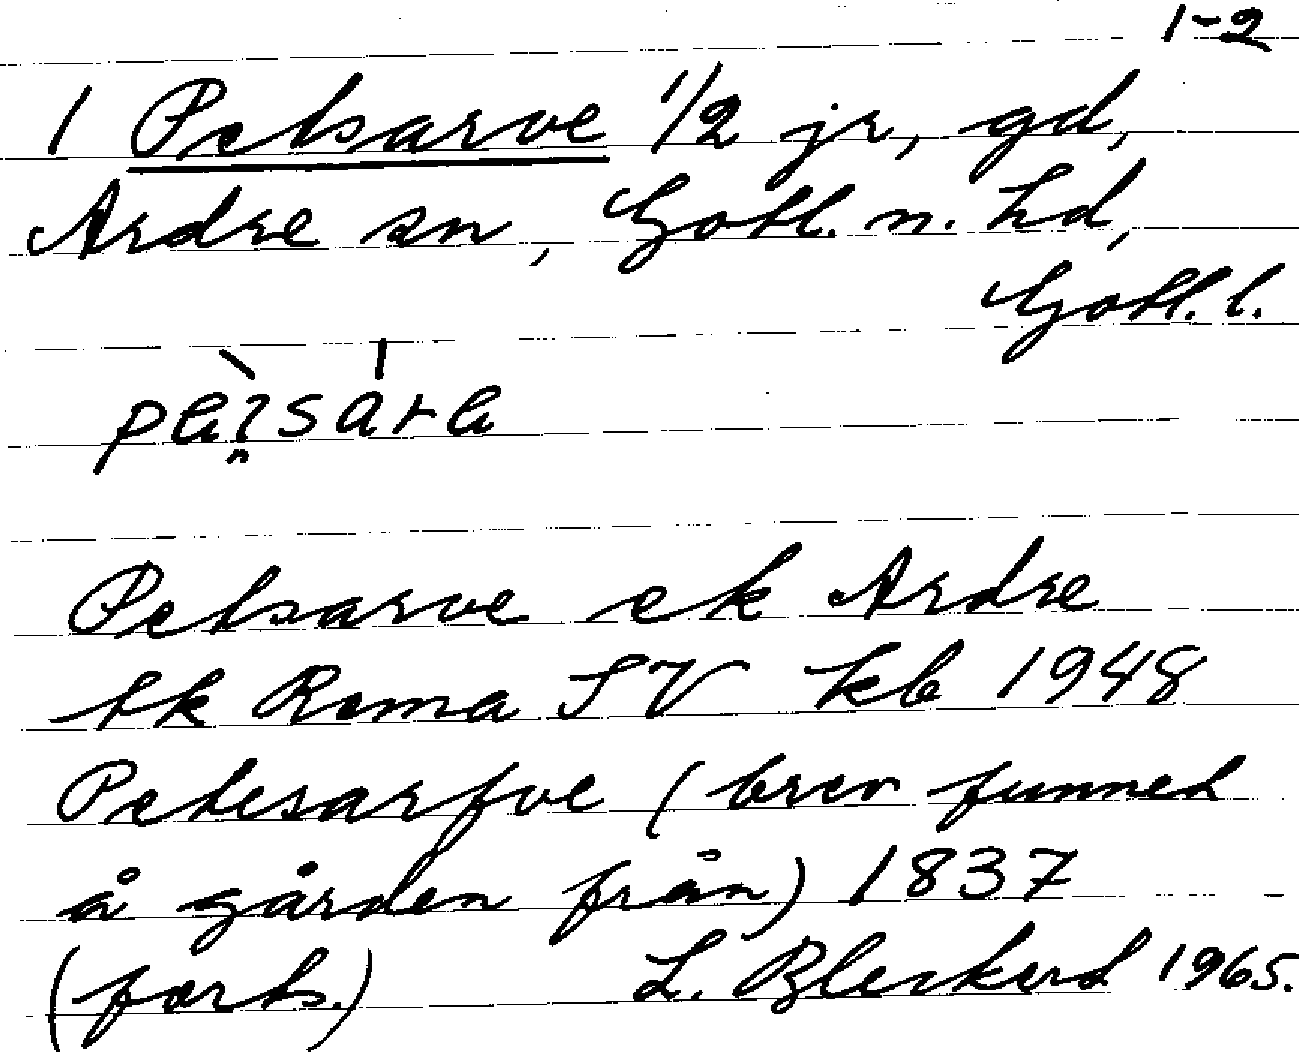 1-2
1 Petsarve 1/2 jr, gd,
Ardre sn, Gotl. n. hd,
Gotl. l.
Petsarve ek Ardre
tk Roma SV kb 1948
Petesarfve (brev funnet
å gården från) 1837
(forts.) L. Bleckert 1965.